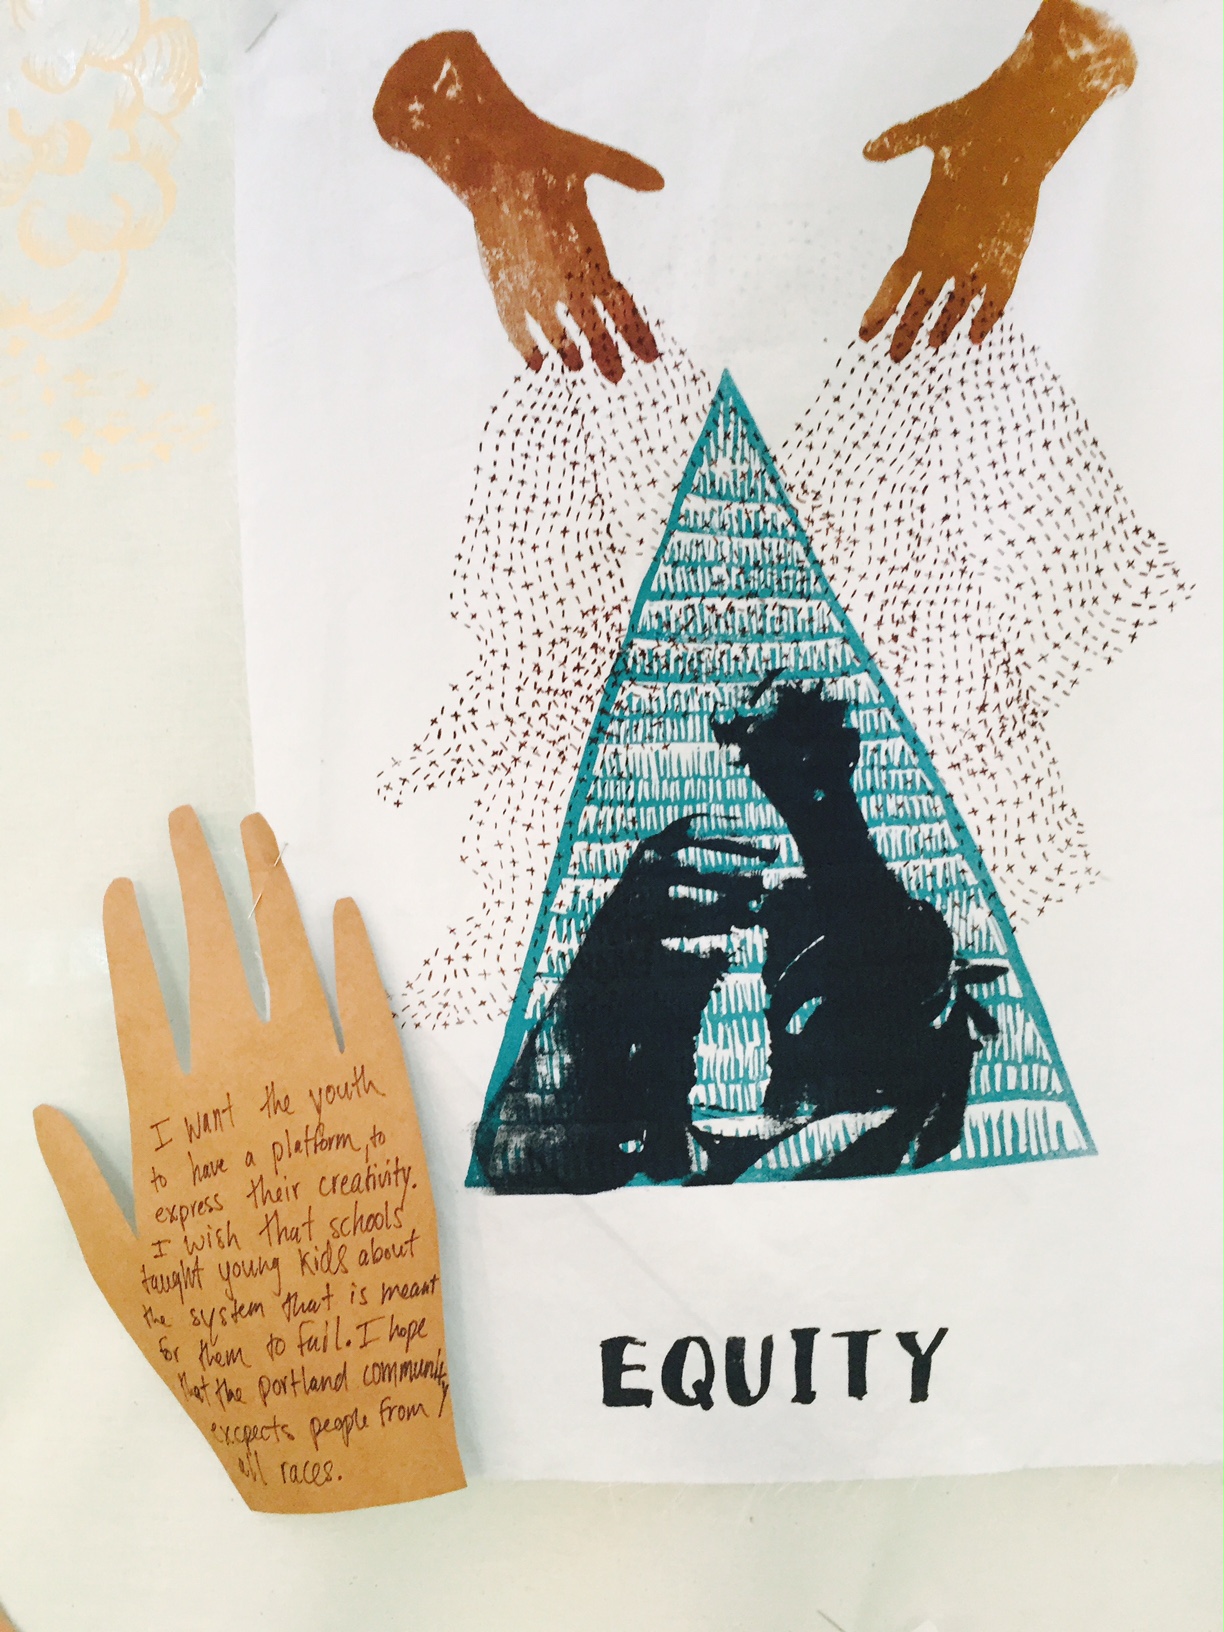 I want the youth
to have a platform, to
express their creativity.
I wish that schools
taught young kids about
the system that is meant
for them to fail. I hope
that the portland community
excpects people from
all races.
EQUITY